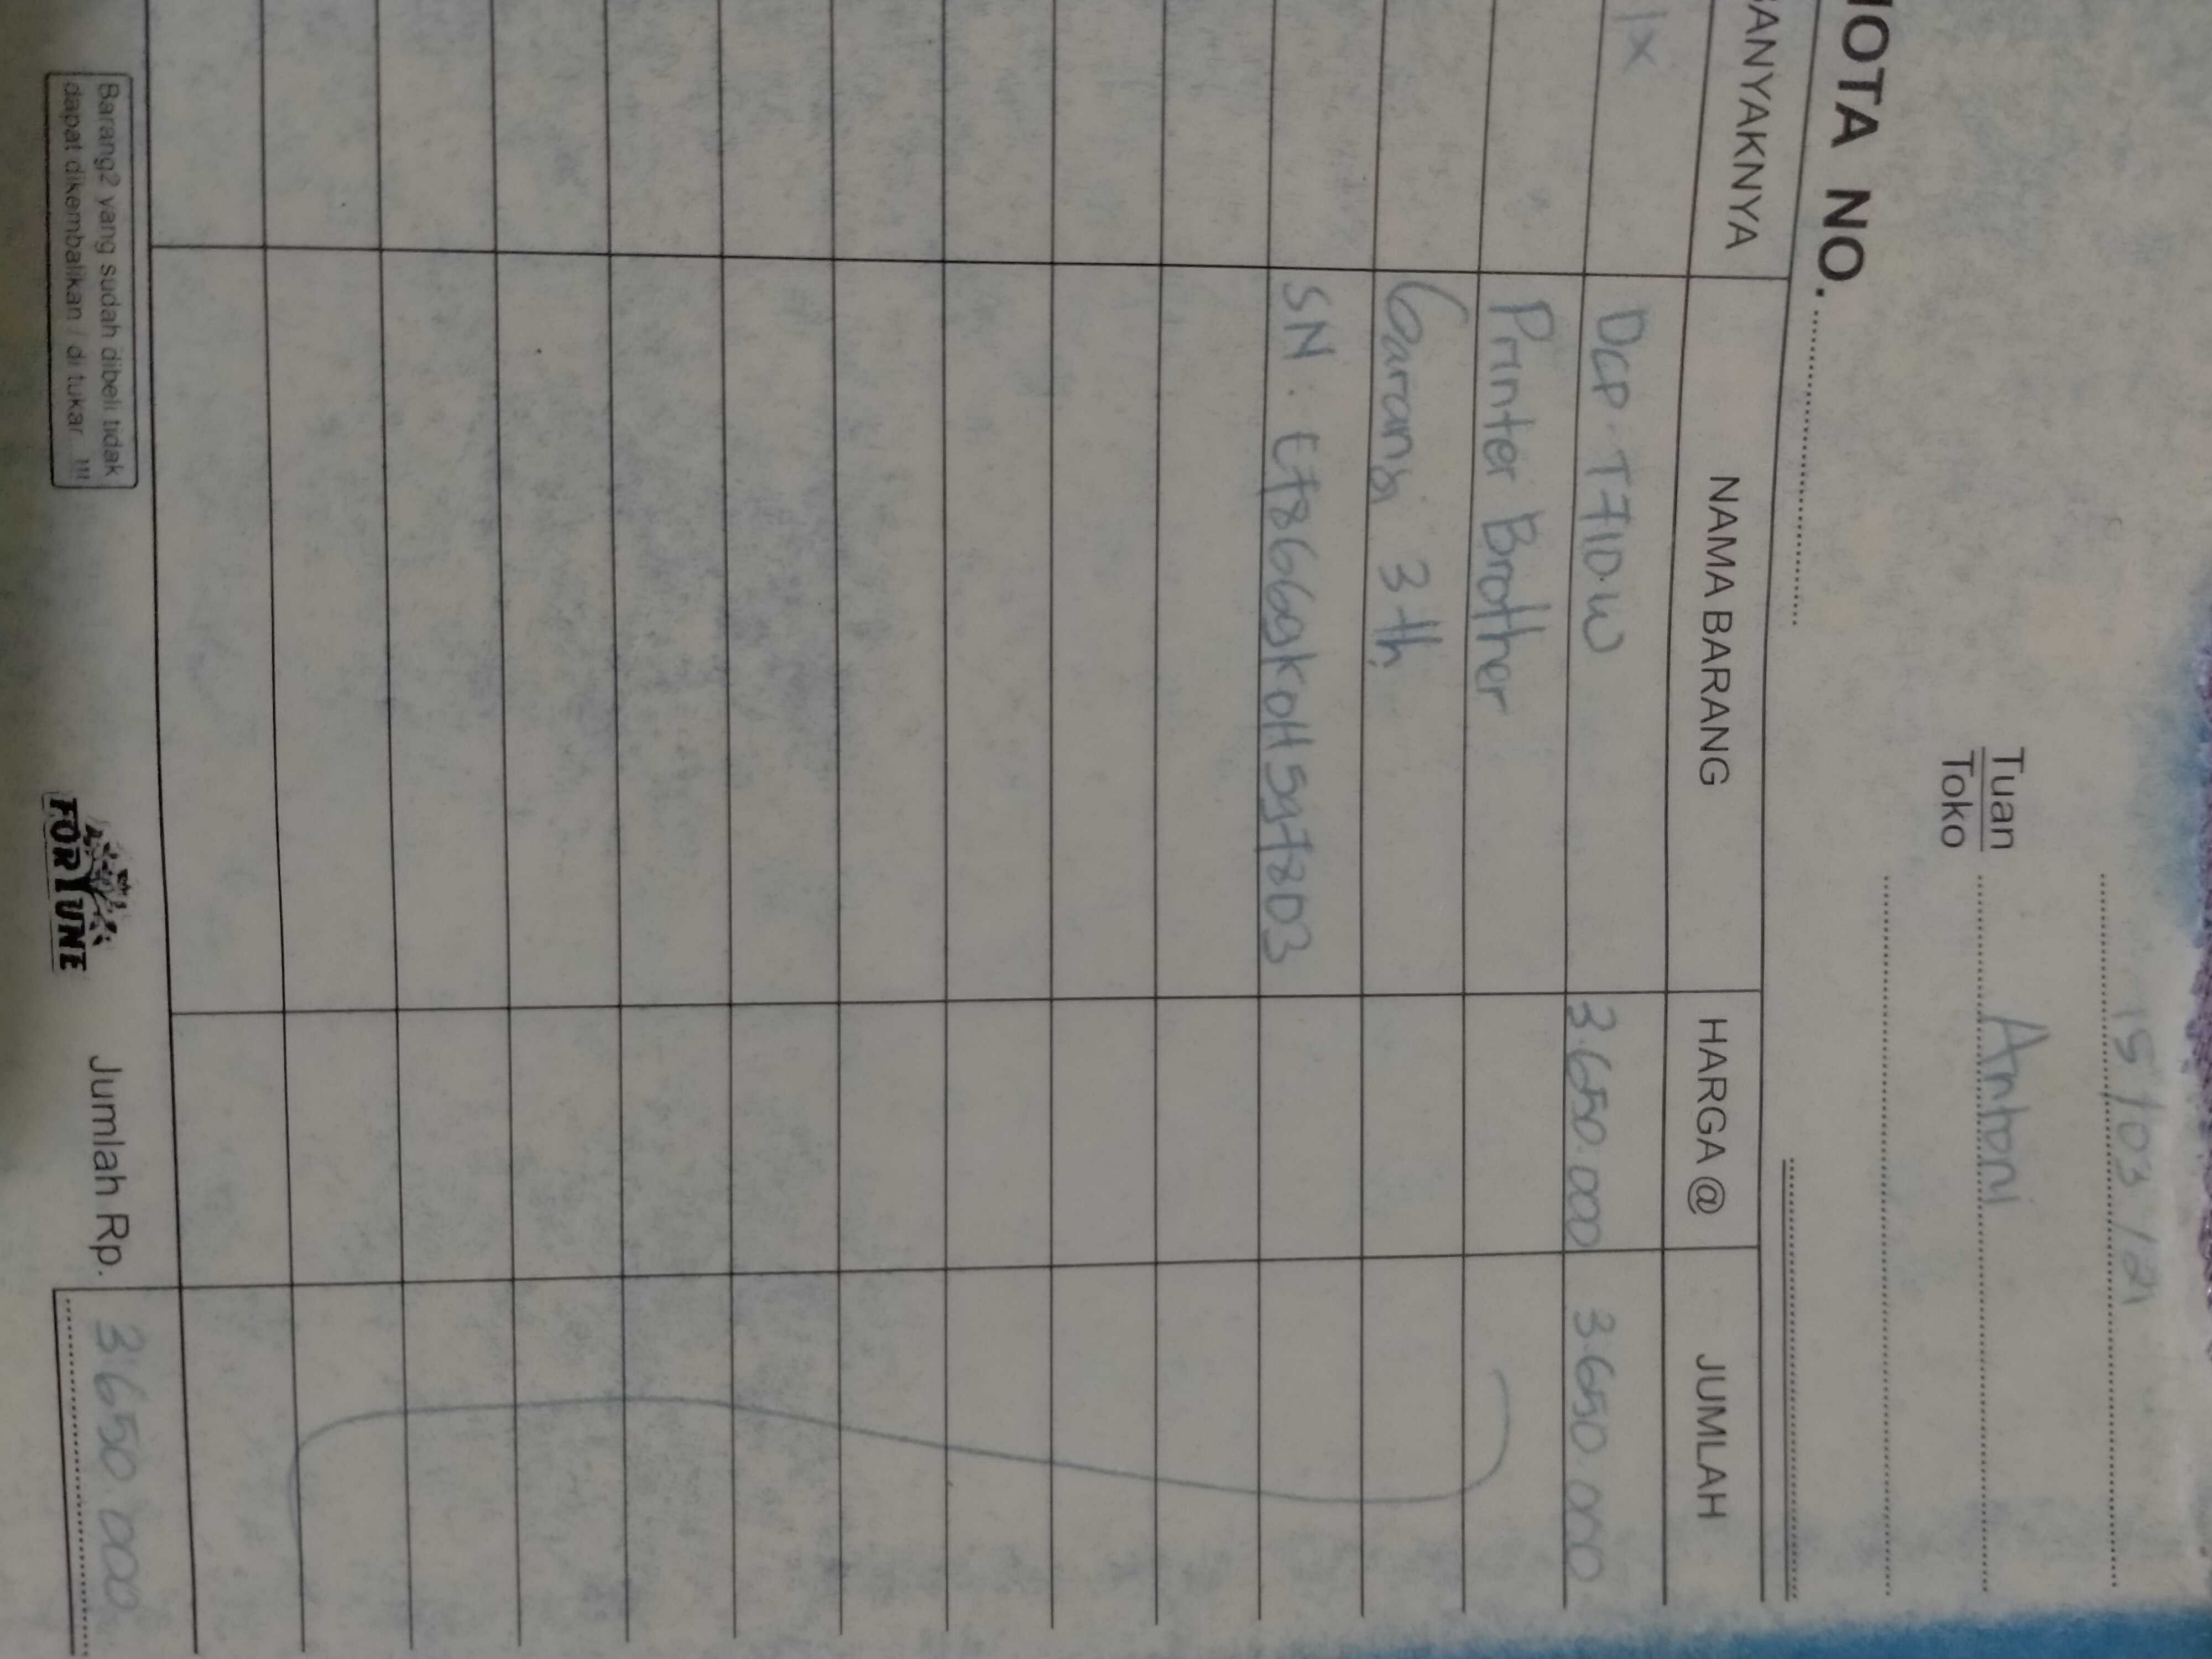 15/03/21
Tuan Antoni
Toko
NOTA NO.
BANYAKNYA NAMA BARANG HARGA @ JUMLAH
1x DCP.T710.W 3.650.000 3.650.000
Printer Brother
Garansi 3 th
Jumlah Rp. 3.650.000
Barang2 yang sudah dibeli tidak
dapat dikembalikan / di tukar...!!!
FORTUNE